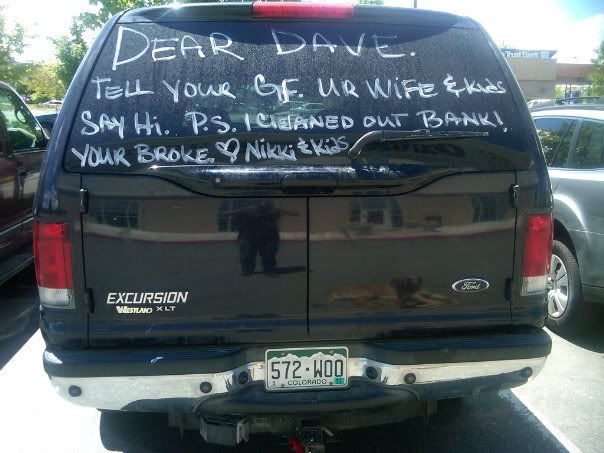 DEAR DAVE.
TELL YOUR GF. UR WIFE & Kids
SAY Hi. P.S. I CLEANED OUT BANK!
YOUR BROKE. ♡ Nikki & Kids
Trust Bank
EXCURSION
WESTLAND XLT
Ford
572·WOO
COLORADO